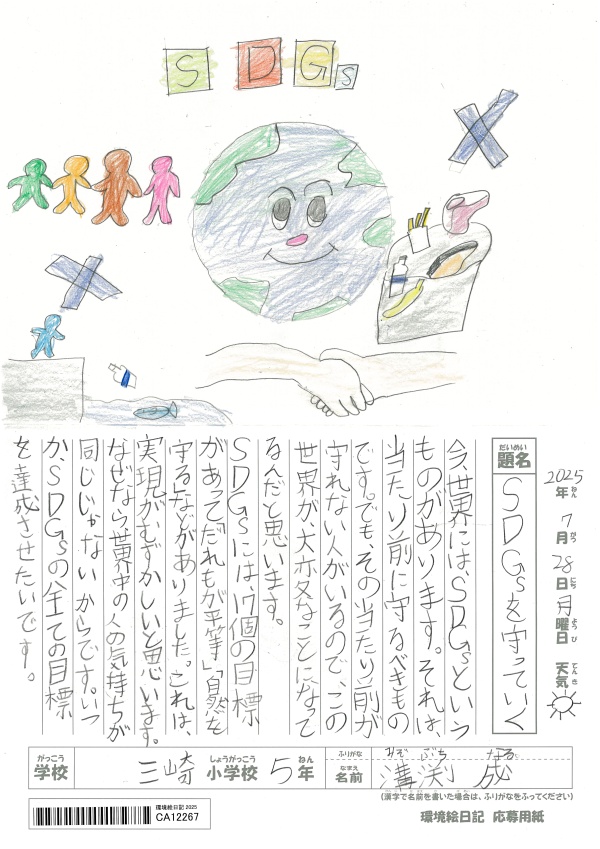 SDGs
2025年7月28日月曜日 天気
ねん がつ にち ようび てんき
だいめい
題名
SDGsを守っていく
今、世界には、SDGsという
ものがあります。それは、
当たり前に守るべきもの
です。でも、その当たり前が
守れない人がいるので、この
世界が、大変なことになって
るんだと思います。
SDGsには、17個の目標
があって「だれもが平等」、「自然を
守る」などがありました。これは、
実現がむずかしいと思います。
なぜなら、世界中の人の気持ちが
同じじゃないからです。いつ
か、SDGsの全ての目標
を達成させたいです。
がっこう しょうがっこう ねん
学校 三崎 小学校 5年
ふりがな みぞ ぶち なる
なまえ
名前 溝渕 成
(漢字で名前を書いた場合は、ふりがなをふってください)
環境絵日記 2025
CA12267
環境絵日記 応募用紙